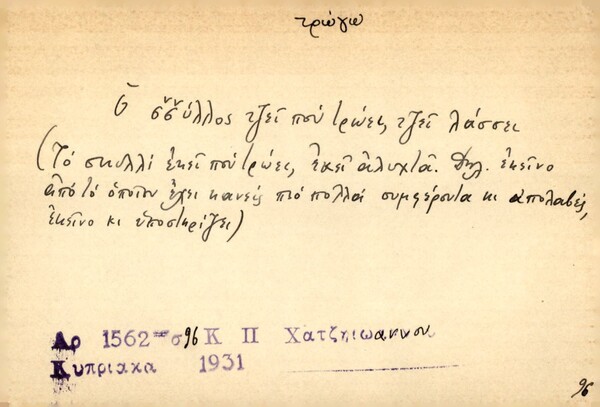 τρώγω
Ο σ̌σ̌ύλλος τζεῖ πού τρώει, τζεῖ λάσσει
(Τό σκυλλί ἐκεῖ πού τρώει, ἐκεῖ ἀλυχτᾶ. Δηλ. ἐκεῖνο
ἀπό τό ὁποῖον ἔχει κανείς πιό πολλά συμφέροντα κι ἀπολαβές,
ἐκεῖνο κι ὑποστηρίζει)
Αρ 1562 σ 96 Κ Π Χατζηιωαννου
Κυπριακα 1931
96